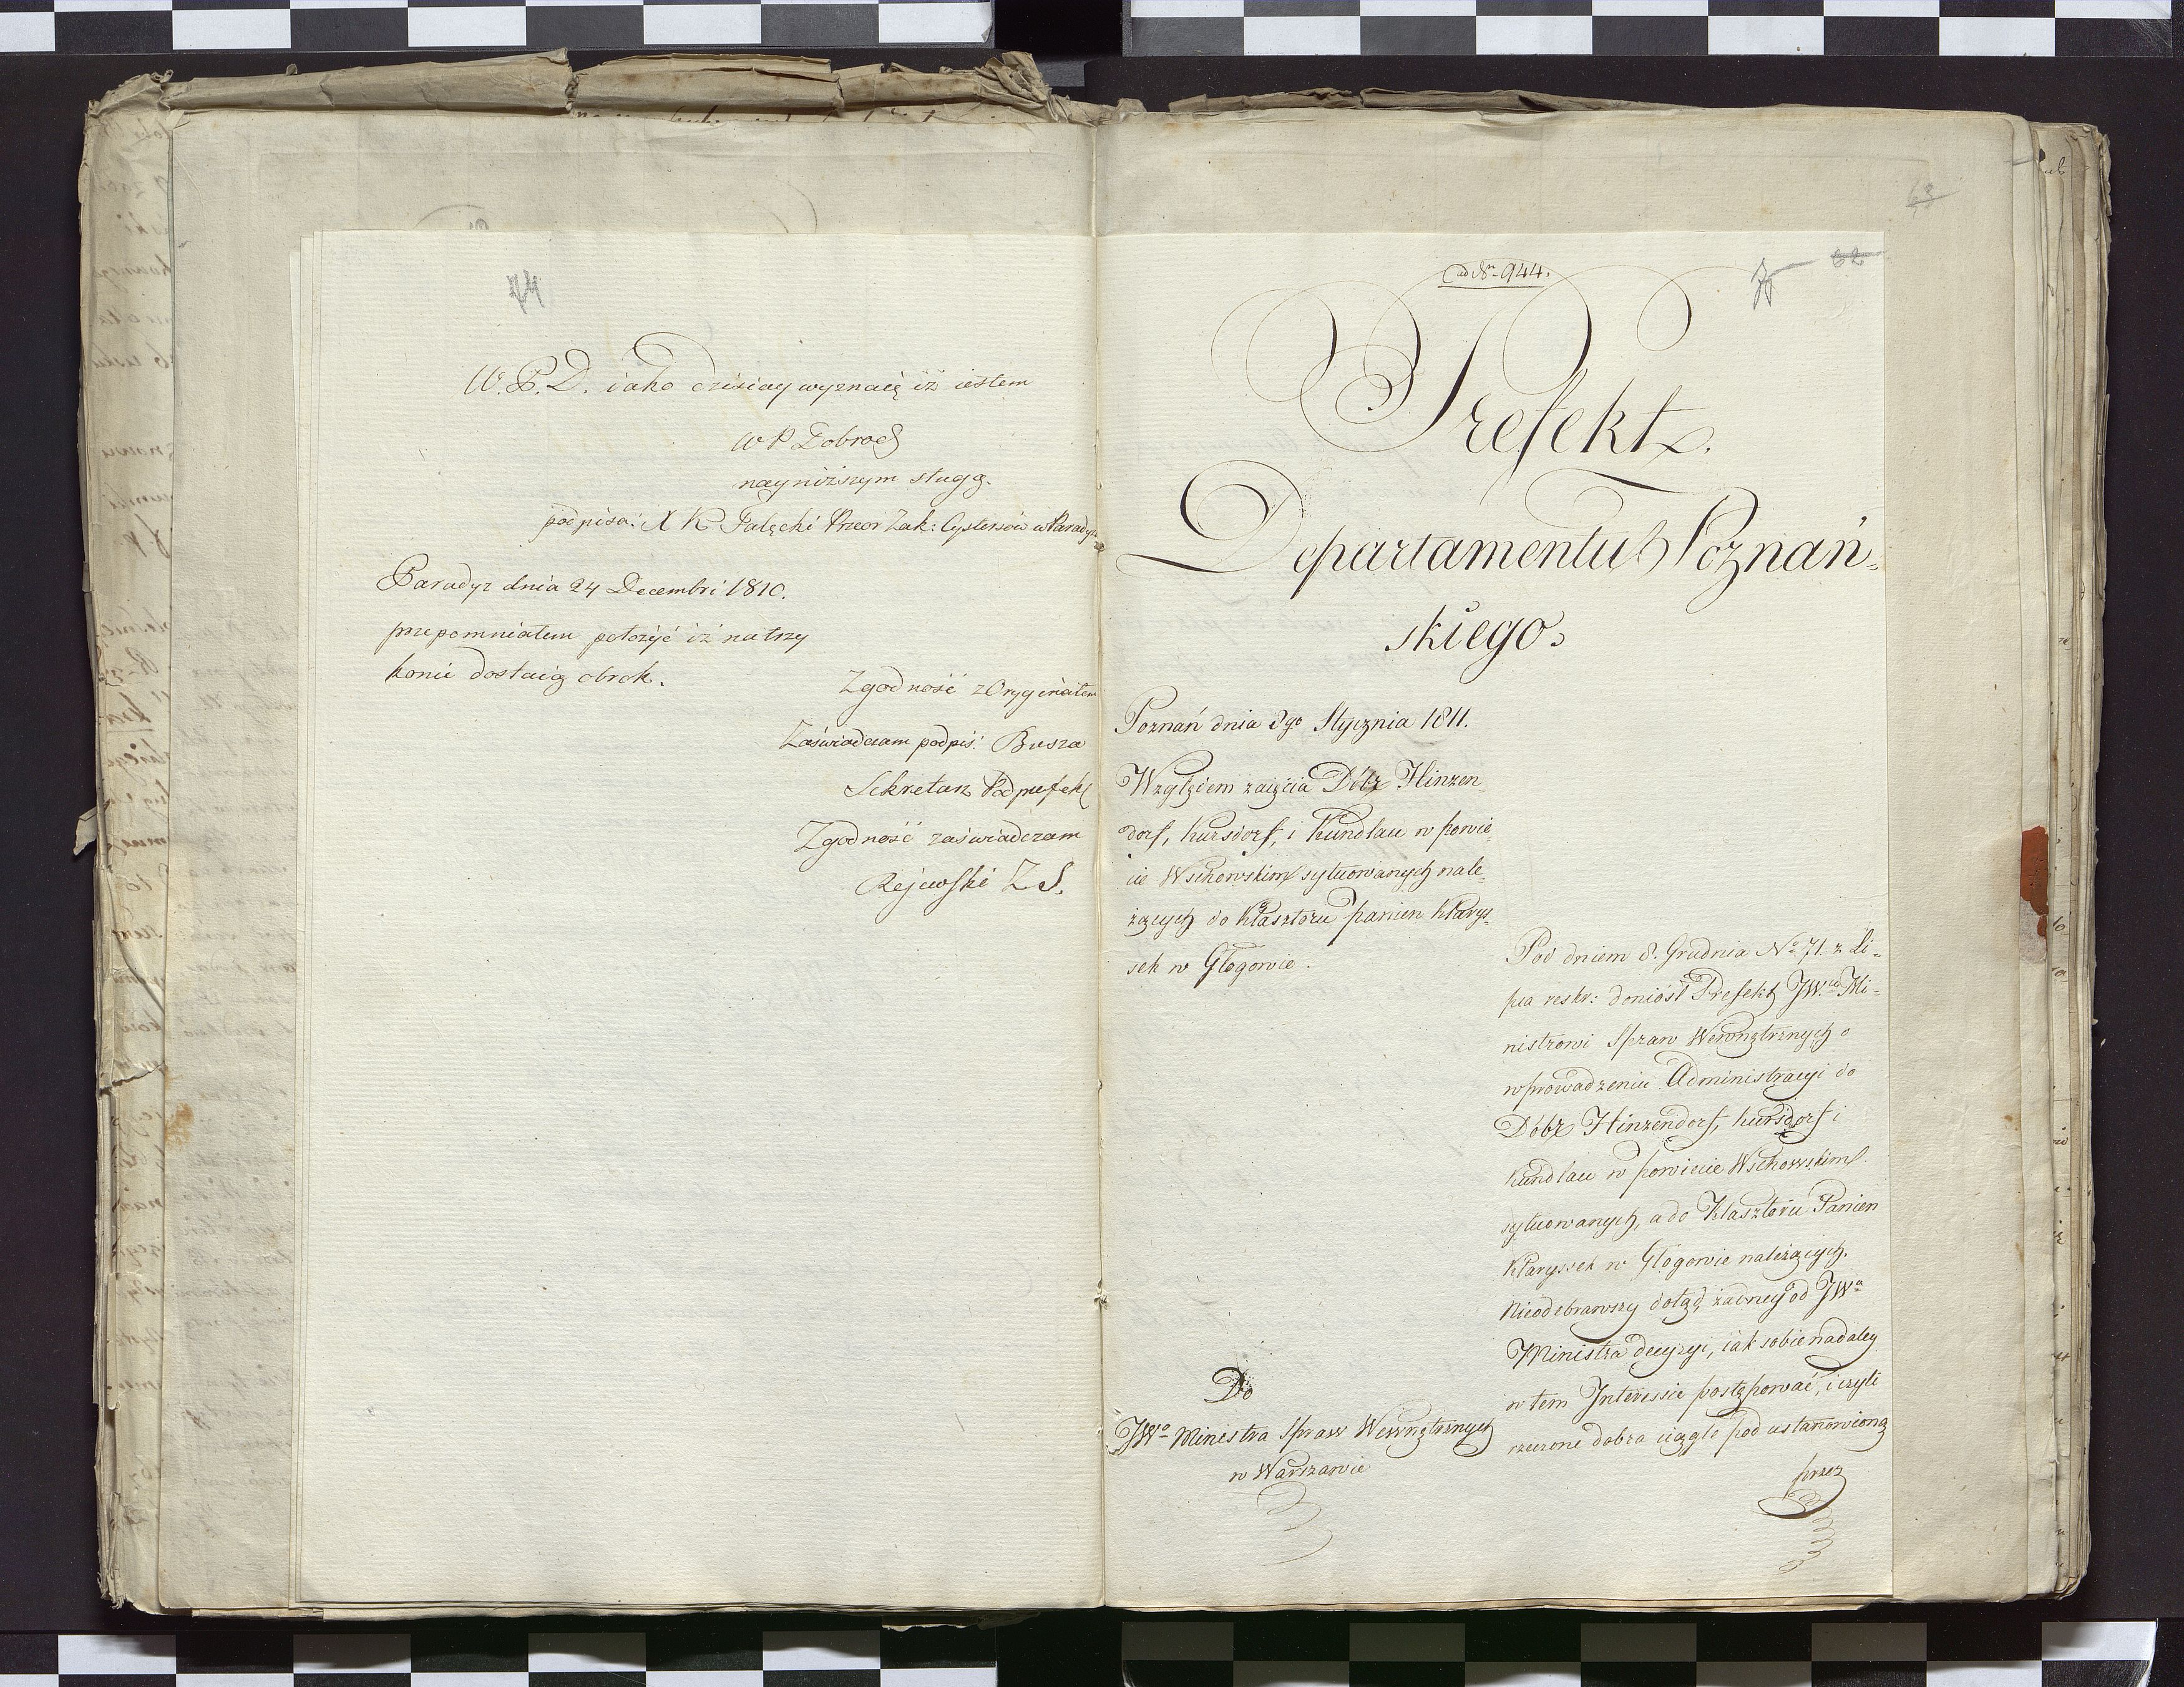 74
W. P. D. iako dzisiay wyznaię iż iestem
W P Dobrodz
nayniższym sługą.
podpisa: X K Gałęcki Przeor Zak: Cystersów w Paradyżu
Paradyz dnia 24 Decembri 1810.
przepomniałem położyć iż na trzy
konie dostaią obrok.
Zgodność z Oryginałem
Zaświadczam podpis: Busza
Sekretarz Podprefekt
Zgodność zaświadczam
Rejewski Z S.
63
62
75
ad Nr 944.
Prefekt
Departamentu Poznań-
skiego.
Poznań dnia 8go Stycznia 1811.
Względem zaięcia Dóbr Hinzen
dorf, Kursdorf, i Kundlau w powie-
cie Wschowskim sytuowanych nale-
żących do Klasztoru panien Klarys-
sek w Głogowie.
Pod dniem 8. Grudnia No 71. z Li-
pca reskr: doniósł Prefekt JWu Mi-
nistrowi Spraw Wewnętrznych o
wprowadzeniu Administracyi do
Dóbr Hinzendorf, Kursdorf i
Kundlau w powiecie Wschowskim
sytuowanych, a do Klasztoru Panien
Klaryssek w Głogowie należących.
Nieodebrawszy dotąd żadney od JWo
Ministra decyzyi, iak sobie nadaley
w tem Interessie postępować, i czyli
rzeczone dobra ciągle pod ustanowioną
przez
Do
JWo Ministra Spraw Wewnętrznych
w Warszawie